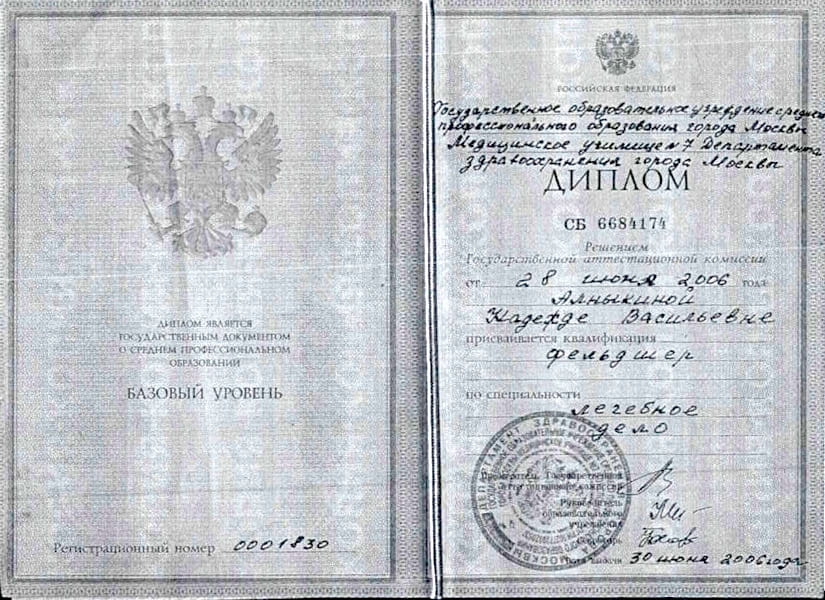 ДИПЛОМ ЯВЛЯЕТСЯ
ГОСУДАРСТВЕННЫМ ДОКУМЕНТОМ
О СРЕДНЕМ ПРОФЕССИОНАЛЬНОМ
ОБРАЗОВАНИИ
БАЗОВЫЙ УРОВЕНЬ
Регистрационный номер 0001830
РОССИЙСКАЯ ФЕДЕРАЦИЯ
Государственное образовательное учреждение среднего
профессионального образования города Москвы
Медицинское училище № 7 Департамента
здравоохранения города Москвы
ДИПЛОМ
СБ 6684174
Решением
Государственной аттестационной комиссии
от 28 июня 2006 года
Алныкиной
Надежде Васильевне
присваивается квалификация
фельдшер
по специальности
лечебное
дело
Председатель Государственной
аттестационной комиссии
Руководитель
образовательного
учреждения
Секретарь
Дата выдачи 30 июня 2006 года